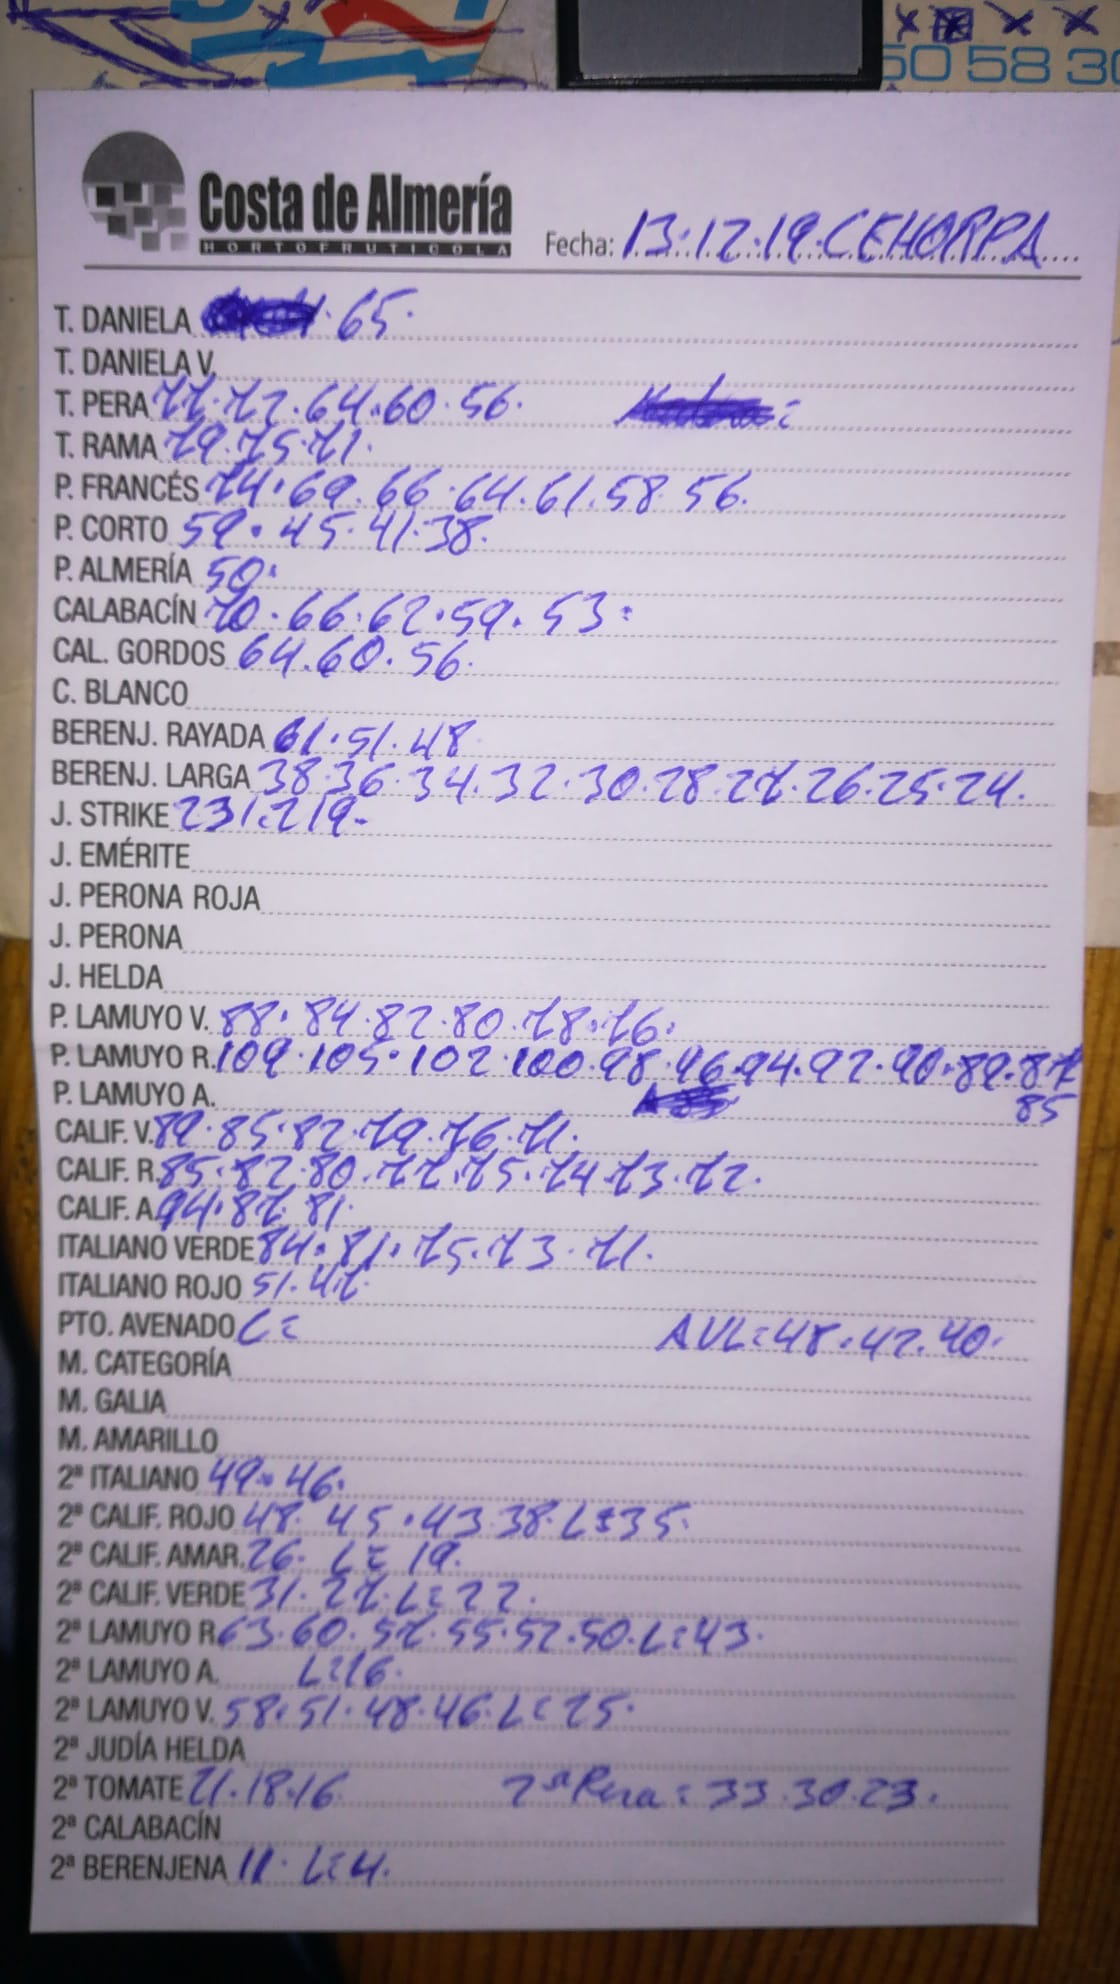 50 58 30
Costa de Almería
HORTOFRUTICOLA
Fecha: 13.12.19. CEHORPA
T. DANIELA 65.
T. DANIELA V.
T. PERA 77.72.64.60.56.
T. RAMA 79.75.71.
P. FRANCÉS 74.69.66.64.61.58.56.
P. CORTO 59.45.41.38.
P. ALMERÍA 50.
CALABACÍN 70.66.62.59.53:
CAL. GORDOS 64.60.56.
C. BLANCO
BERENJ. RAYADA 61.51.48
BERENJ. LARGA 38.36.34.32.30.28.27.26.25.24.
J. STRIKE 231.219.
J. EMÉRITE
J. PERONA ROJA
J. PERONA
J. HELDA
P. LAMUYO V. 88.84.82.80.78.76.
P. LAMUYO R. 109.105.102.100.98.96.94.92.90.89.87
P. LAMUYO A. 85
CALIF. V. 89.85.82.79.76.71.
CALIF. R. 85.82.80.77.75.74.73.72.
CALIF. A. 94.87.81.
ITALIANO VERDE 84.81.75.73.71.
ITALIANO ROJO 51.47.
PTO. AVENADO L= AVL=48.42.40.
M. CATEGORÍA
M. GALIA
M. AMARILLO
2ª ITALIANO 49.46.
2ª CALIF. ROJO 48.45.43.38.L=35.
2ª CALIF. AMAR. 26. L=19.
2ª CALIF. VERDE 31.27.L=22.
2ª LAMUYO R. 63.60.57.55.52.50.L=43.
2ª LAMUYO A. L=16.
2ª LAMUYO V. 58.51.48.46.L=25.
2ª JUDÍA HELDA
2ª TOMATE 21.18.16. 2ª Pera: 33.30.23.
2ª CALABACÍN
2ª BERENJENA 11. L=4.